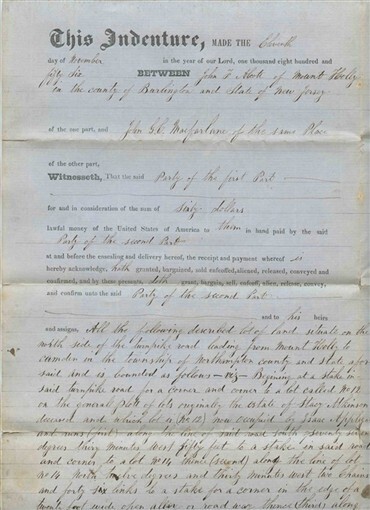 This Indenture, MADE THE Eleventh
day of November in the year of our Lord, one thousand eight hundred and
fifty six BETWEEN John F. of Mount Holly
in the county of Burlington and State of New Jersey
of the one part, and John G.C. Macfarlane of the same Place
of the other part,
Witnesseth, That the said Party of the first Part
for and in consideration of the sum of Sixty dollars
lawful money of the United States of America to him in hand paid by the said
Party of the second Part
at and before the ensealing and delivery hereof, the receipt and payment whereof is
hereby acknowledge, hath granted, bargained, sold enfeoffed, aliened, released, conveyed and
confirmed, and by these presents, doth grant, bargain, sell, enfeoff, alien, release, convey,
and confirm unto the said Party of the second Part
and to his heirs
and assigns, All the following described lot of land situate on the
north side of the turnpike road leading from Mount Holly to
Camden in the township of Northampton county and state afore
said and is bounded as follows - viz - Begining at a stake in
said turnpike road for a corner and corner to a lot called No 12
on the general plot of lots originally the estate of Atkinson
deceased and which lot is (No 12) now occupied by
and runs from along the line of said road
degrees thirty minutes West fifty feet to a stake in said road
and corner to a lot No 14 thence (second) along the line of lot
No 14 North twelve degrees and thirty minutes West two chains
and forty six links to a stake for a corner in the edge of a
twenty foot wide open alley or road way thence (third) along